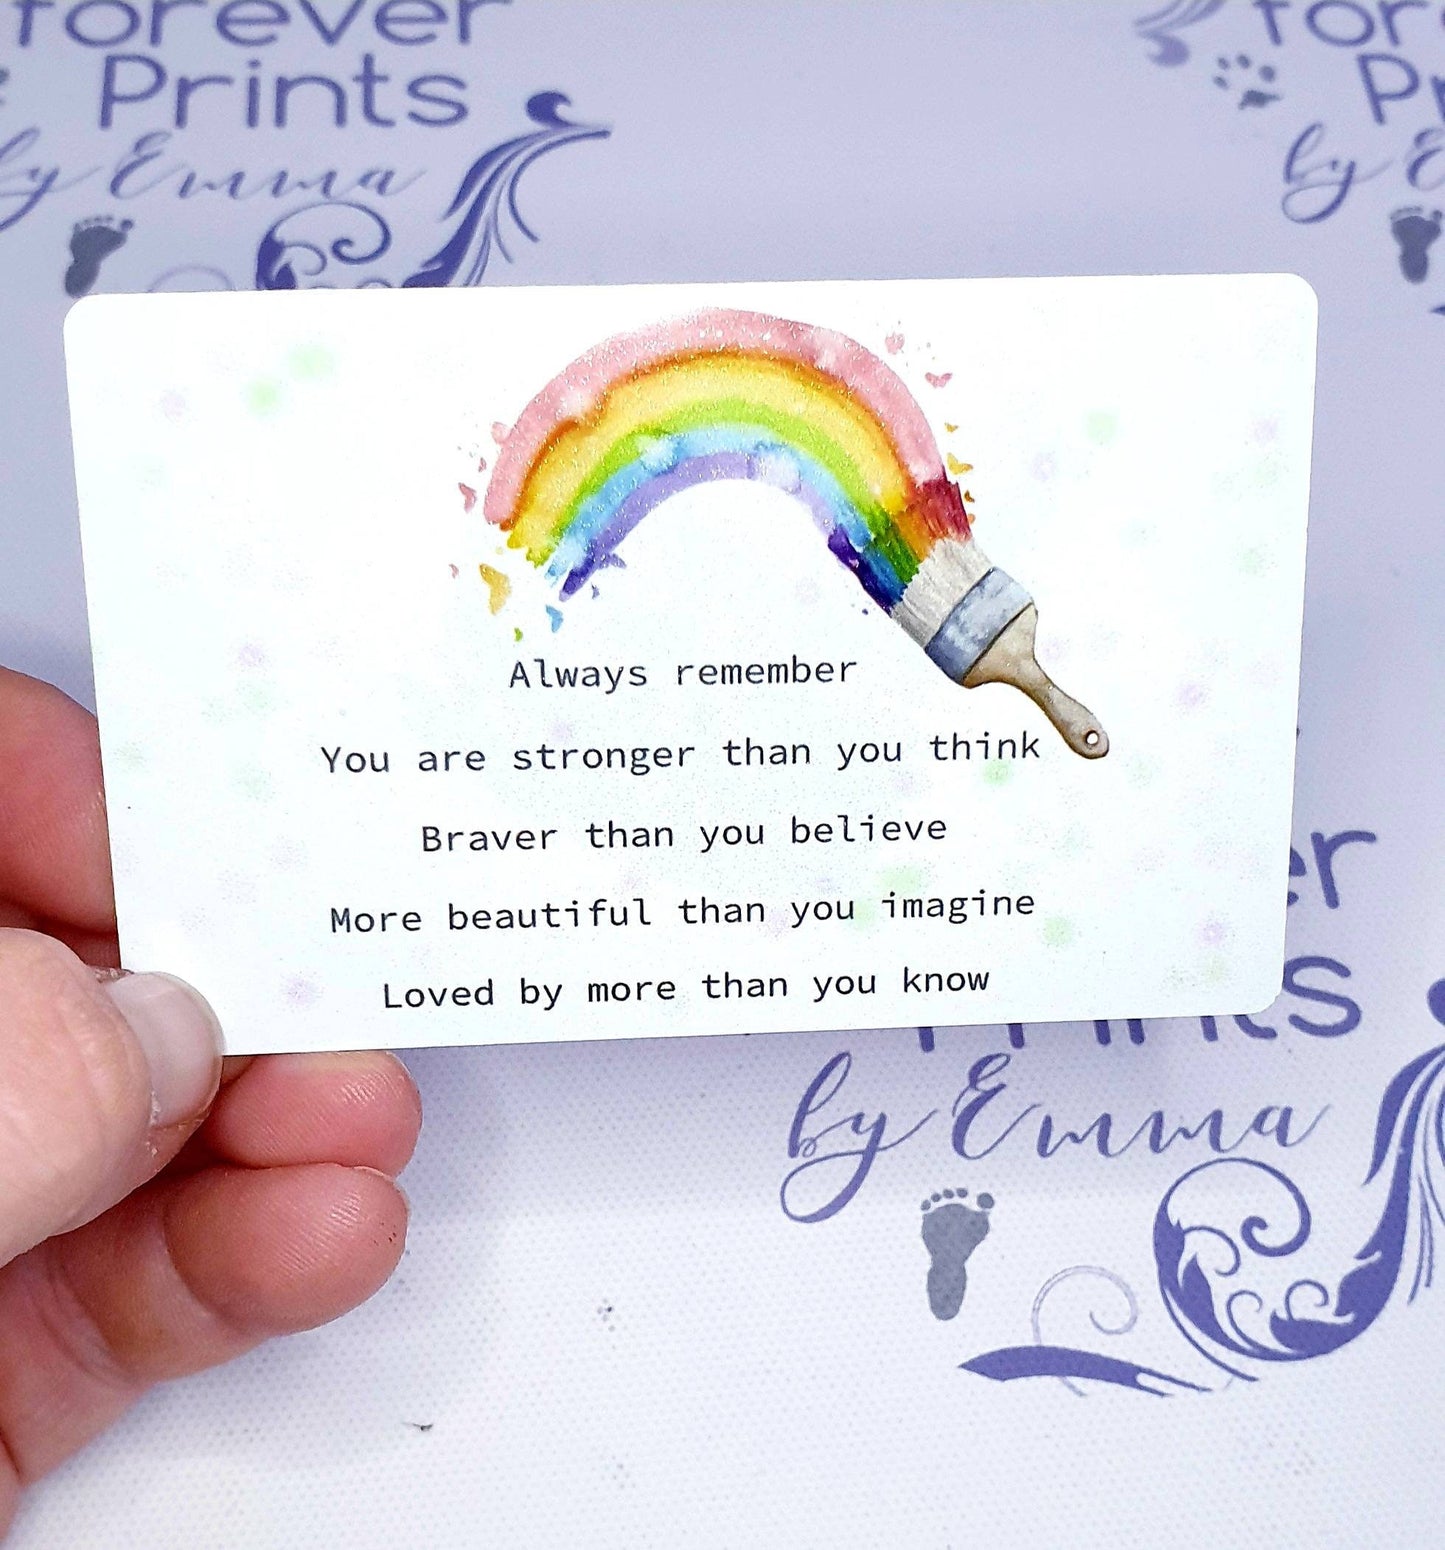 forever
Prints
by Emma
Always remember
You are stronger than you think
Braver than you believe
More beautiful than you imagine
Loved by more than you know
by Emma